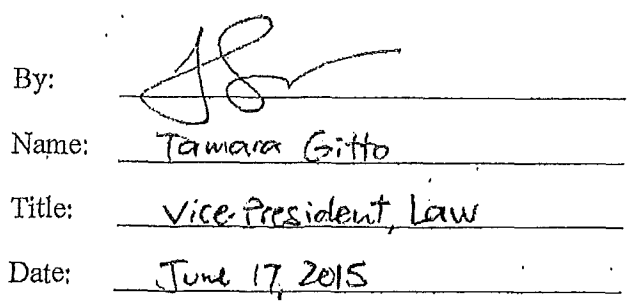 By:
Name: Tamara Gitto
Title: Vice-President, Law
Date: June 17, 2015